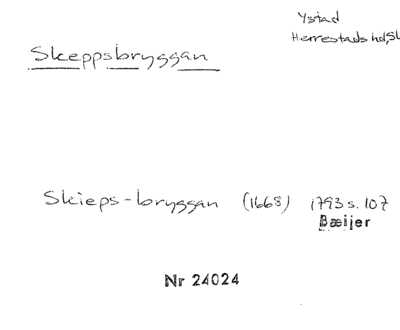 Ystad
Herrestads hd, Sk
Skeppsbryggan
Skieps-bryggan (1668) 1793 s. 107
Bæijer
Nr 24024